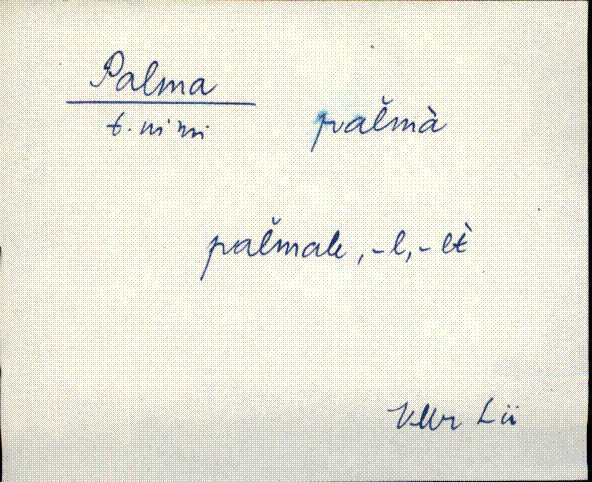 Palma
t. nimi
pal̆mà
pal̆male, -l, -lt̀
VMr Lü